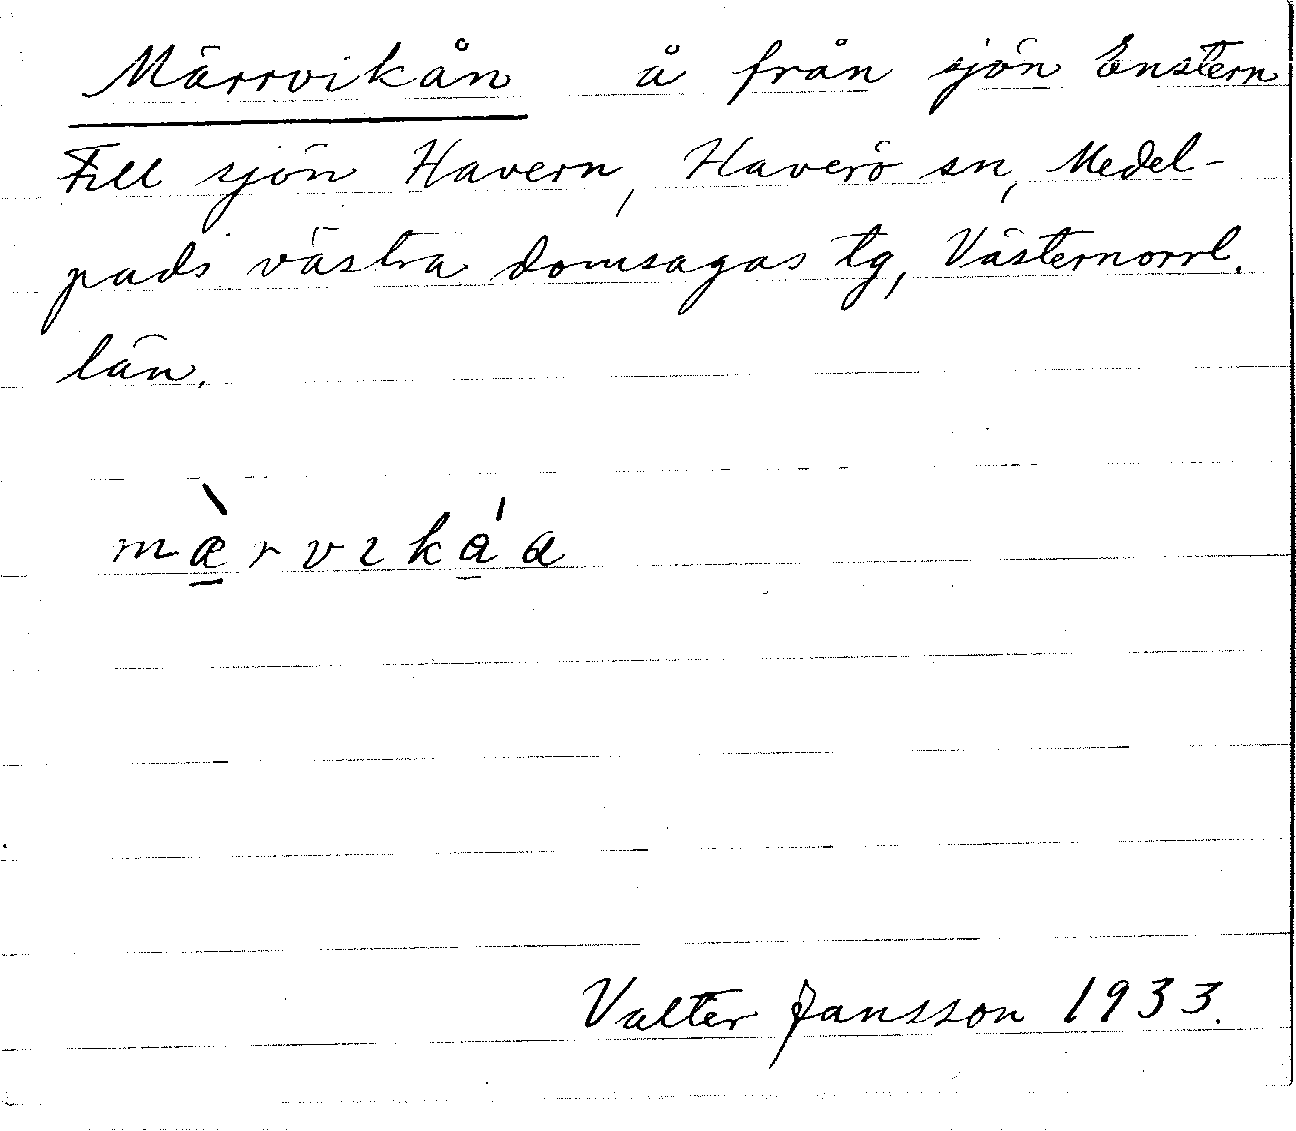 Märrvikån å från sjön Enstern
till sjön Havern, Haverö sn, Medel-
pads västra domsagas tg, Västernorrl.
län.
mæ̱̀rvıkǻ̱a
Valter Jansson 1933.